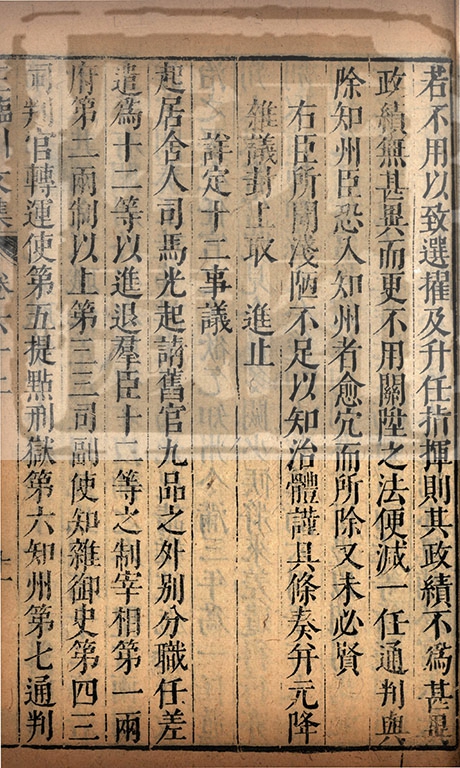 若不用以致選擢及升任指揮則其政績不爲甚異
政績無甚異而更不用關陞之法便減一任通判與
除知州臣恐入知州者愈宂而所除又未必賢
右臣所聞淺陋不足以知治體謹具條奏幷元降
雜議封上取 進止
詳定十二事議
起居舍人司馬光起請舊官九品之外別分職任差
遣爲十二等以進退羣臣十二等之制宰相第一兩
府第二兩制以上第三三司副使知雜御史第四三
司判官轉運使第五提點刑獄第六知州第七通判
臨川文集 卷六十二